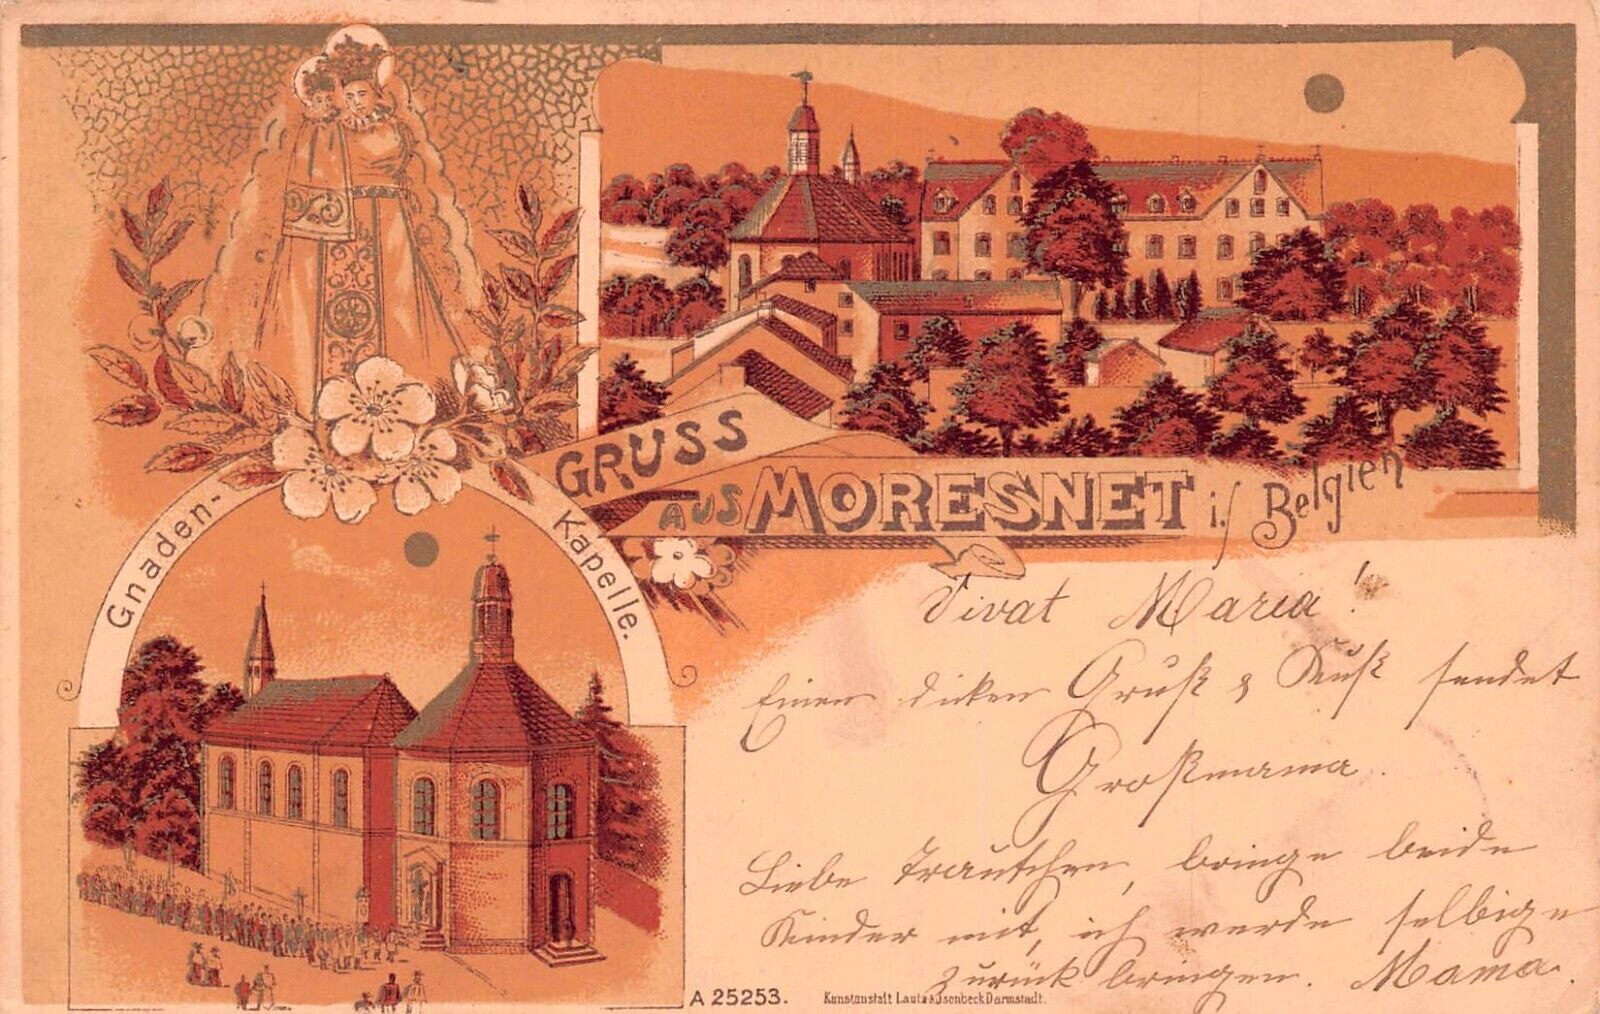 GRUSS
AUS MORESNET i/ Belgien
Gnaden-Kapelle.
Vivat Maria!
Einen dicken Gruß & Kuß sendet
Großmama.
Liebe Trautchen, bringe beide
Kinder mit, ich werde selbige
zurück bringen. Mama.
A 25253. Kunstanstalt Lautz & Jsenbeck Darmstadt.